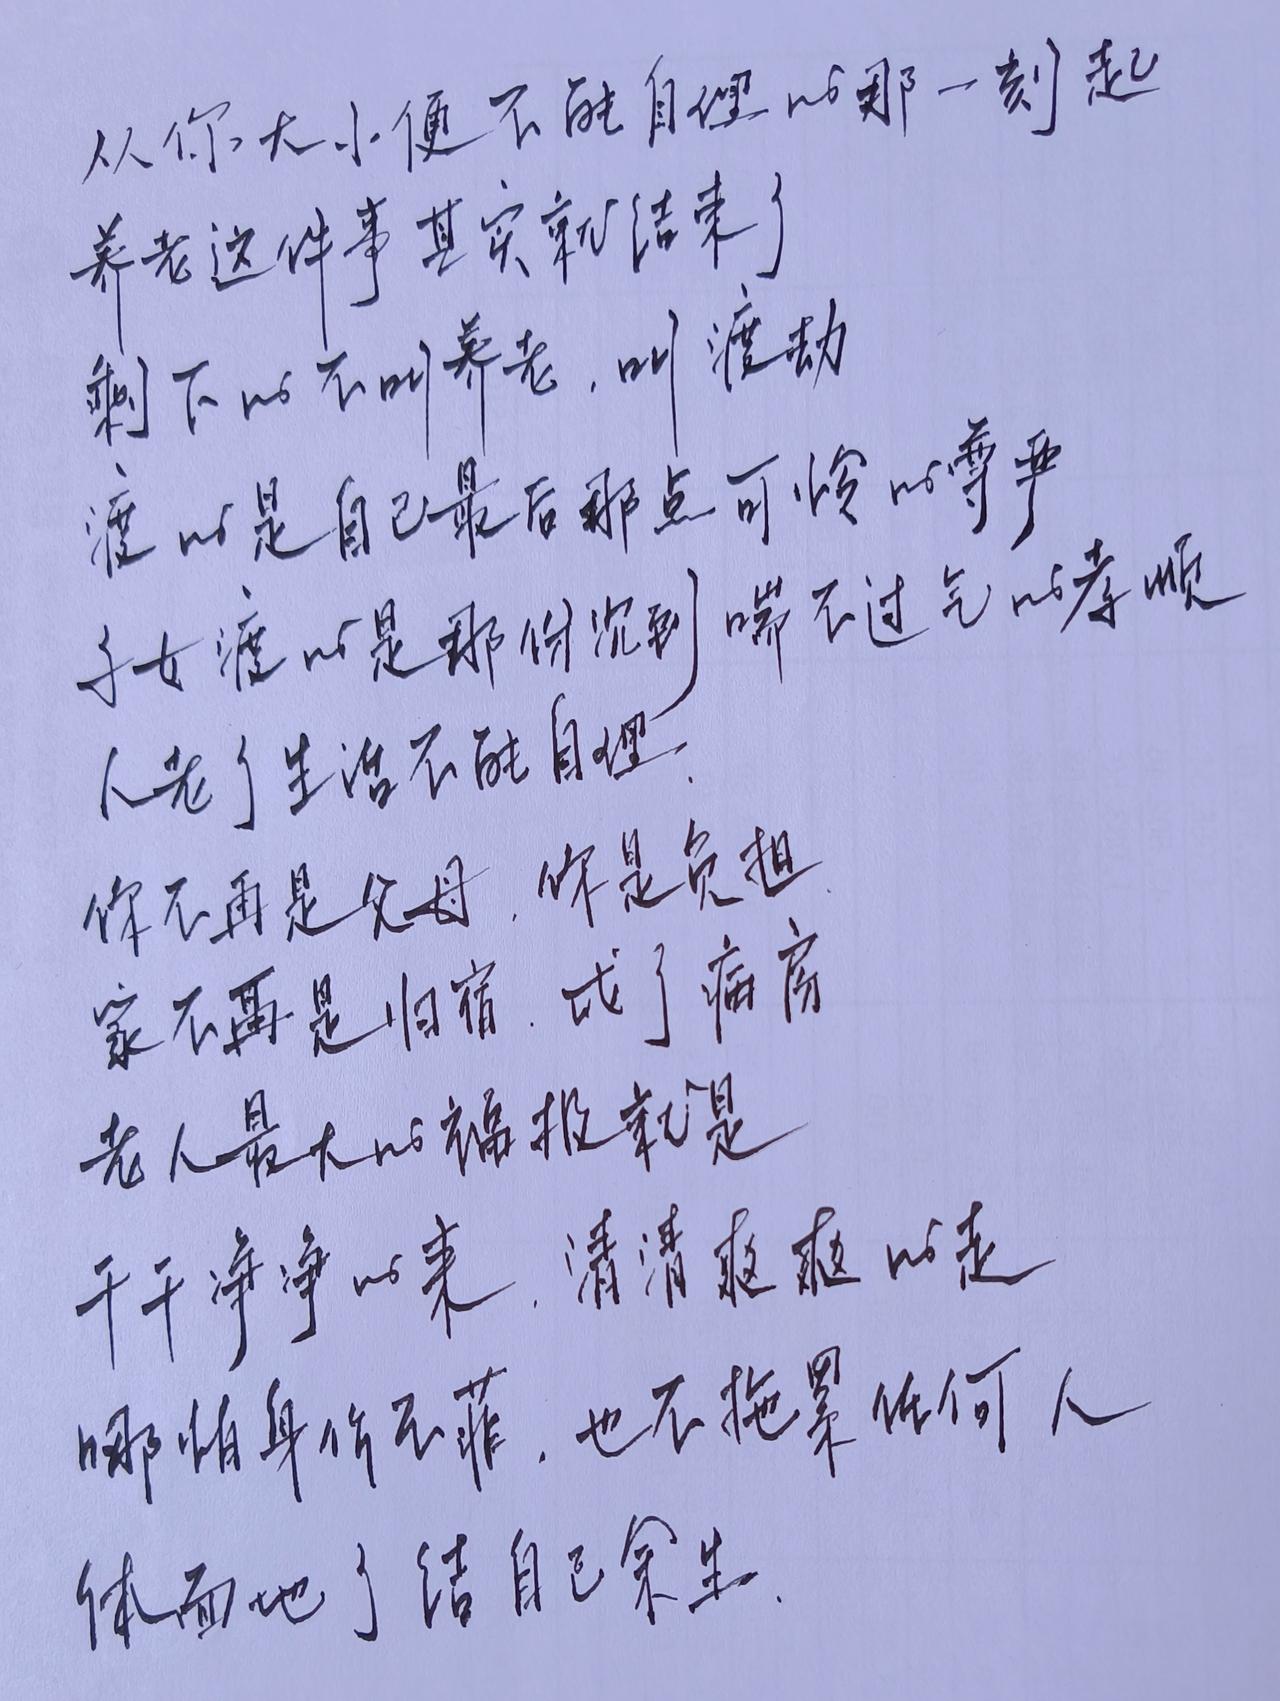 从你大小便不能自理的那一刻起
养老这件事其实就结束了
剩下的不叫养老,叫渡劫
渡的是自己最后那点可怜的尊严
子女渡的是那份沉到喘不过气的孝顺
人老了生活不能自理.
你不再是父母,你是负担.
家不再是归宿,成了病房
老人最大的福报就是
干干净净的来,清清爽爽的走
哪怕身价不菲,也不拖累任何人
体面地了结自己余生.